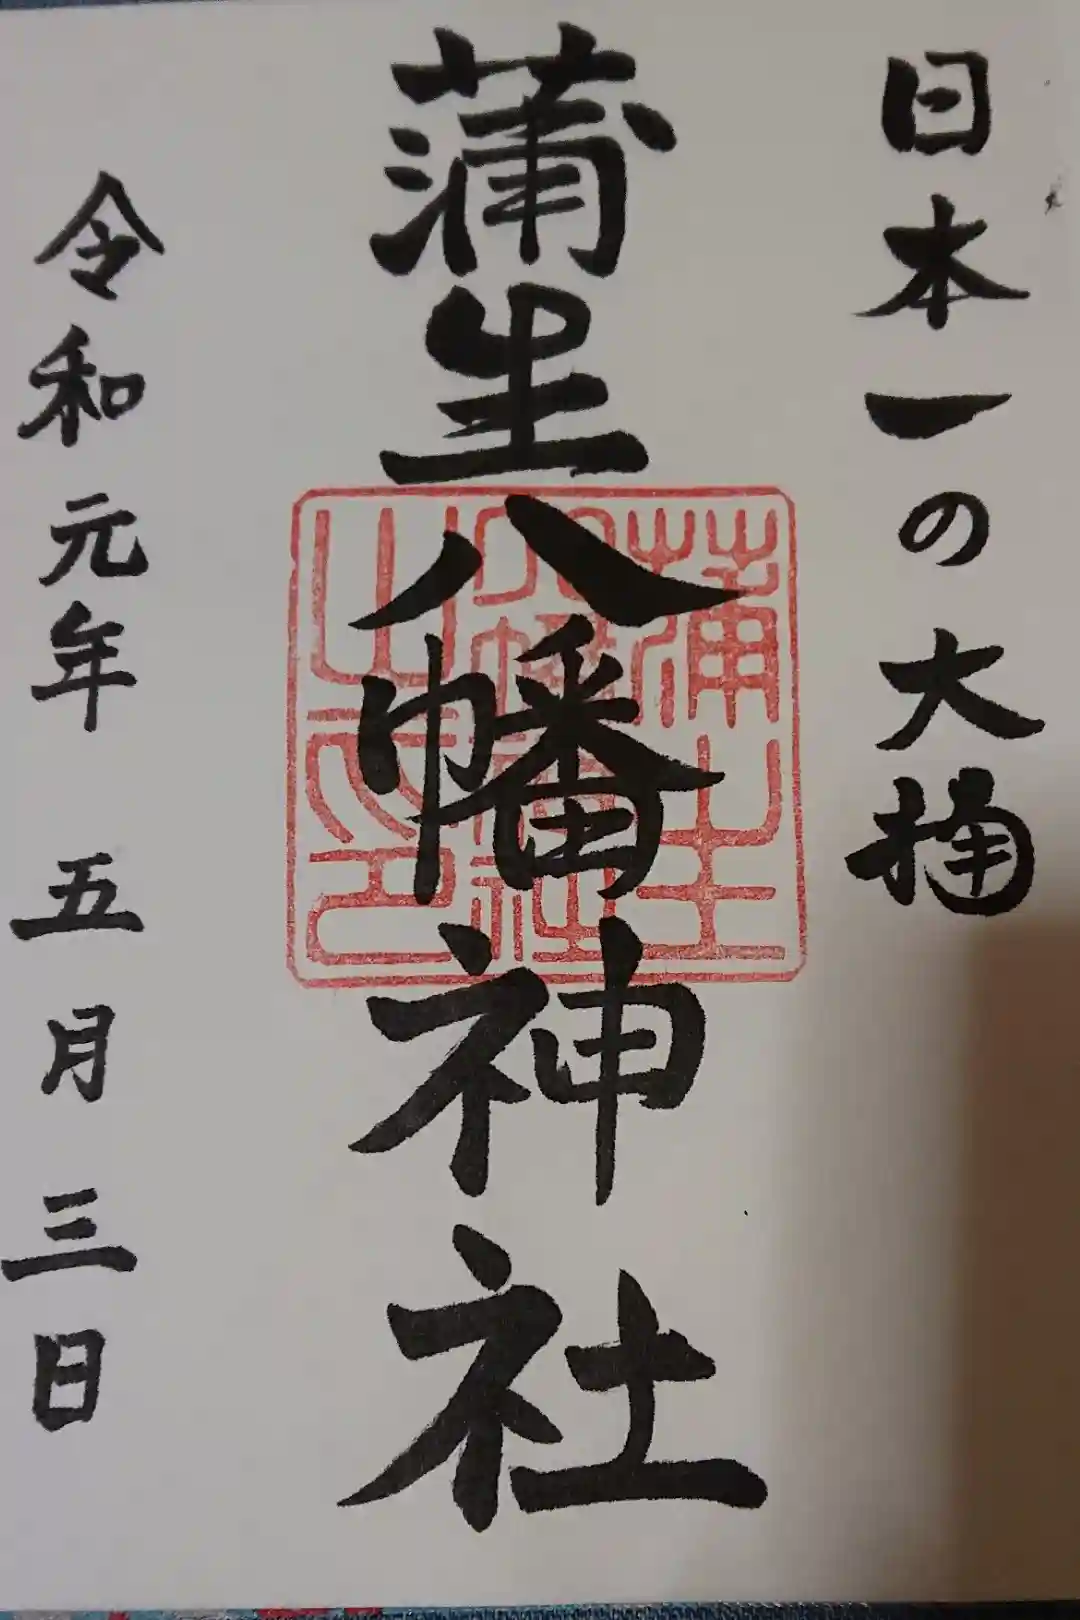 日本一の大楠
蒲生八幡神社
令和元年 五月三日
蒲生
八幡神社
之印